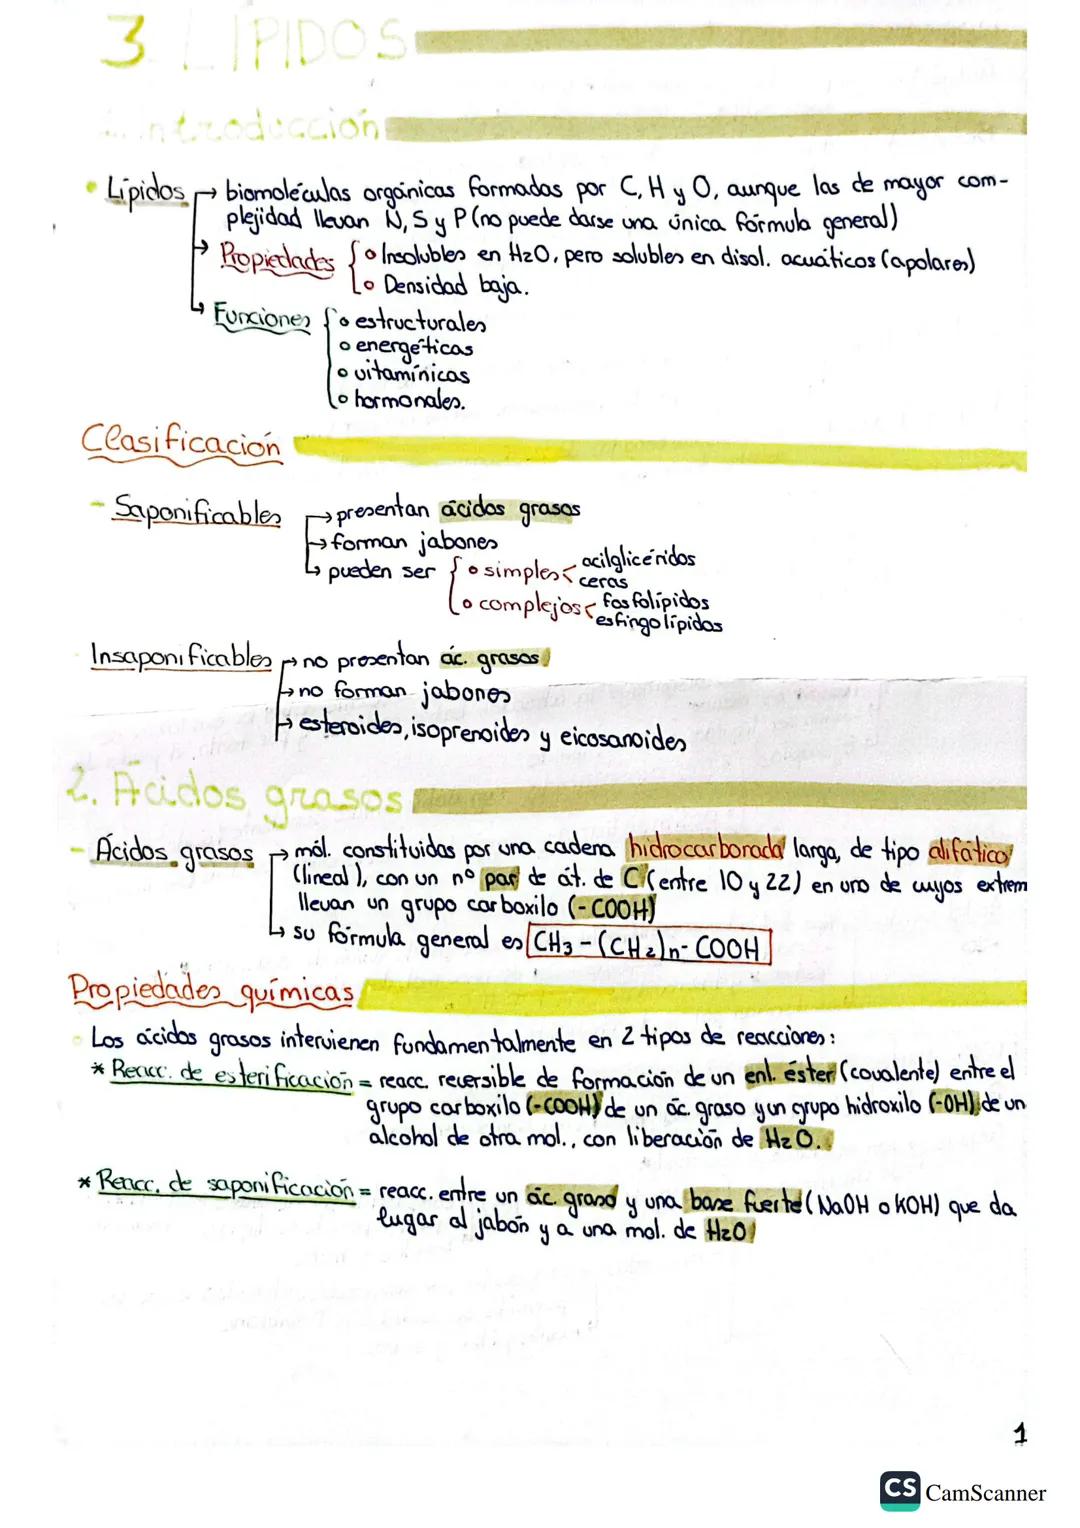 3. LÍPIDOS
Introducción
Lípidos → biomoléculas orgánicas formadas por C, H y O, aunque las de mayor com-
plejidad llevan N, S y P (no puede darse una única fórmula general)
→ Propiedades { o Insolubles en H2O, pero solubles en disol. acuáticos (apolares)
o Densidad baja.
→ Funciones { o estructurales
o energéticas
o vitamínicas
o hormonales.
Clasificación
- Saponificables → presentan ácidos grasos
→ forman jabones
→ pueden ser { o simples < acilglicéridos
ceras
o complejos < fosfolípidos
esfingolípidos
Insaponificables → no presentan ác. grasos
→ no forman jabones
→ esteroides, isoprenoides y eicosanoides
2. Ácidos grasos
- Ácidos grasos → mól. constituidas por una cadena hidrocarborada larga, de tipo alifático
(lineal), con un nº par de át. de C (entre 10 y 22) en uno de cuyos extrem
llevan un grupo carboxilo (-COOH)
→ su fórmula general es CH3-(CH2)n-COOH
Propiedades químicas
Los ácidos grasos intervienen fundamentalmente en 2 tipos de reacciones:
* Reacc. de esterificación = reacc. reversible de formación de un enl. éster (covalente) entre el
grupo carboxilo (-COOH) de un ác. graso y un grupo hidroxilo (-OH) de un
alcohol de otra mol., con liberación de H2O.
* Reacc. de saponificación = reacc. entre un ác. graso y una base fuerte (NaOH o KOH) que da
lugar al jabón y a una mol. de H2O
1
CS CamScanner